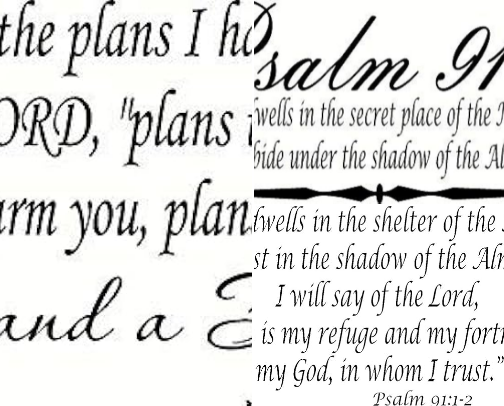 the plans I
ORD, "plans
arm you, plan
and a
Psalm 91
wells in the secret place of the
bide under the shadow of the Al
dwells in the shelter of the
st in the shadow of the Alm
I will say of the Lord,
is my refuge and my fort
my God, in whom I trust."
Psalm 91:1-2